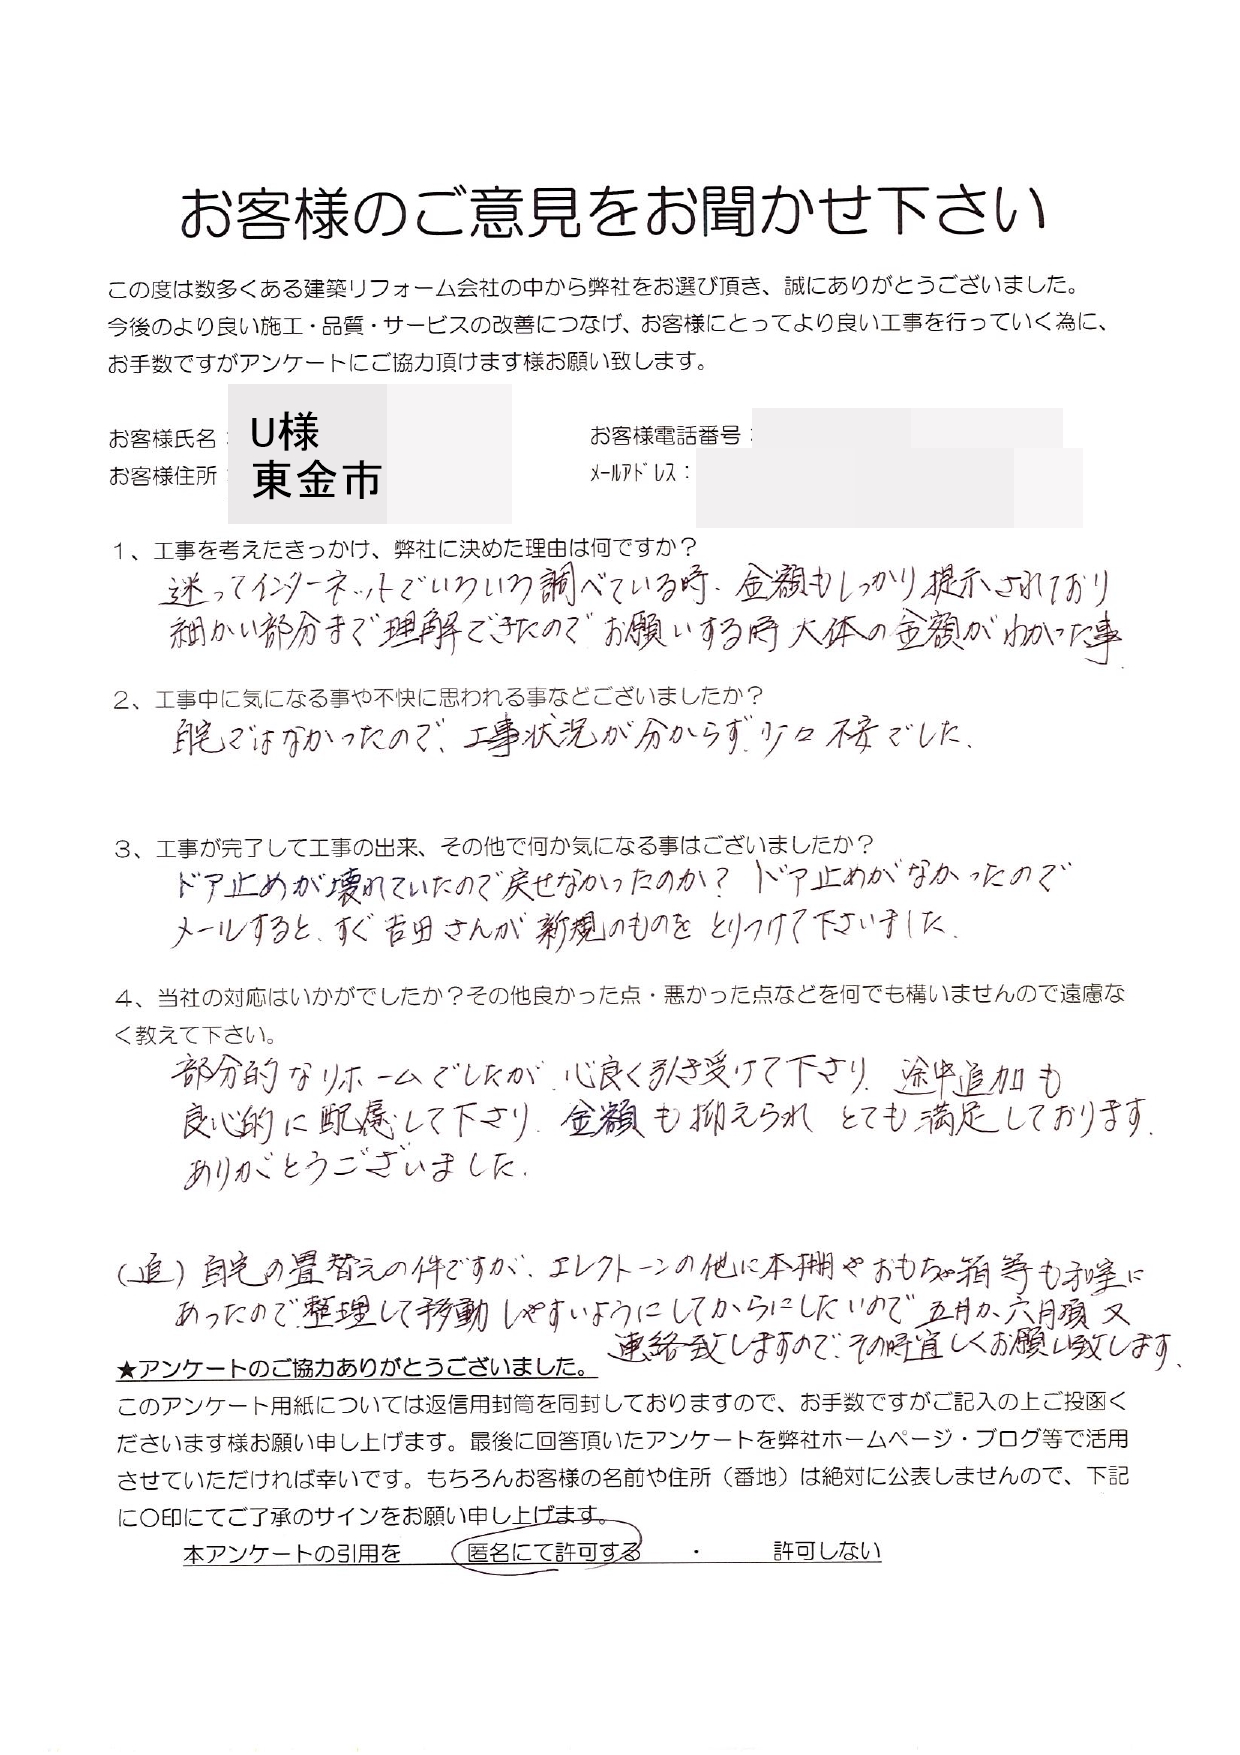 お客様のご意見をお聞かせ下さい
この度は数多くある建築リフォーム会社の中から弊社をお選び頂き、誠にありがとうございました。
今後のより良い施工・品質・サービスの改善につなげ、お客様にとってより良い工事を行っていく為に、
お手数ですがアンケートにご協力頂けます様お願い致します。
お客様氏名：U様 お客様電話番号：
お客様住所：東金市 ﾒｰﾙｱﾄﾞﾚｽ：
1、工事を考えたきっかけ、弊社に決めた理由は何ですか？
迷ってインターネットでいろいろ調べている時、金額もしっかり提示されており
細かい部分まで理解できたのでお願いする時大体の金額がわかった事.
2、工事中に気になる事や不快に思われる事などございましたか？
自宅ではなかったので、工事状況が分からず、少々不安でした、
3、工事が完了して工事の出来、その他で何か気になる事はございましたか？
ドア止めが壊れていたので戻せなかったのか？ ドア止めがなかったので
メールすると、すぐ吉田さんが新規のものをとりつけて下さいました.
4、当社の対応はいかがでしたか？その他良かった点・悪かった点などを何でも構いませんので遠慮な
く教えて下さい。
部分的なリホームでしたが、心良く引き受けて下さり、途中追加も
良心的に配慮して下さり、金額も抑えられ とても満足しております.
ありがとうございました.
(追) 自宅の畳替えの件ですが、エレクトーンの他に本棚やおもちゃ箱等も和室に
あったので、整理して移動しやすいようにしてからにしたいので五月か、六月頃又
連絡致しますので、その時宜しくお願い致します、
★アンケートのご協力ありがとうございました。
このアンケート用紙については返信用封筒を同封しておりますので、お手数ですがご記入の上ご投函く
ださいます様お願い申し上げます。最後に回答頂いたアンケートを弊社ホームページ・ブログ等で活用
させていただければ幸いです。もちろんお客様の名前や住所（番地）は絶対に公表しませんので、下記
に〇印にてご了承のサインをお願い申し上げます。
本アンケートの引用を 匿名にて許可する ・ 許可しない